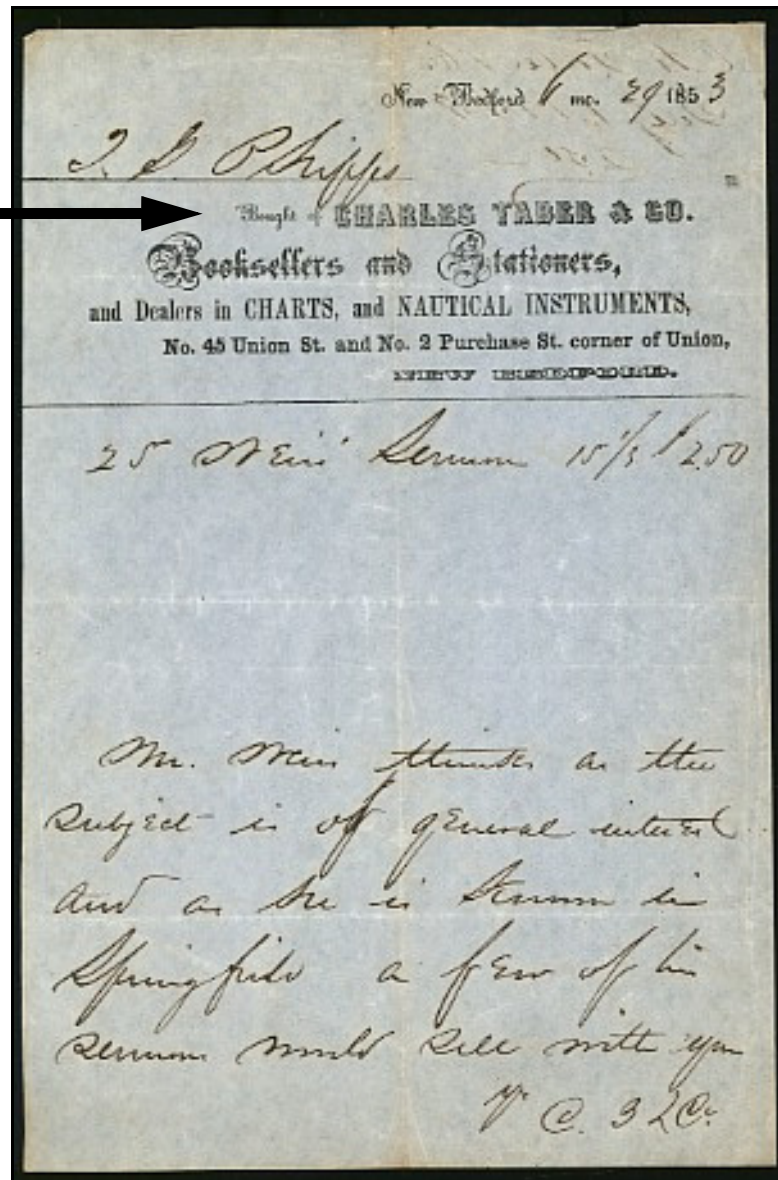 New Bedford 1 mo. 29 1853
Phipps
Bought of CHARLES TABER & CO.
Booksellers and Stationers,
and Dealers in CHARTS, and NAUTICAL INSTRUMENTS,
No. 45 Union St. and No. 2 Purchase St. corner of Union,
NEW BEDFORD.
25 Weiss' Sermon 2.50
Mr. Weiss thinks as the
subject is of general interest
and as he is known in
Springfield a few of his
sermons would sell with you